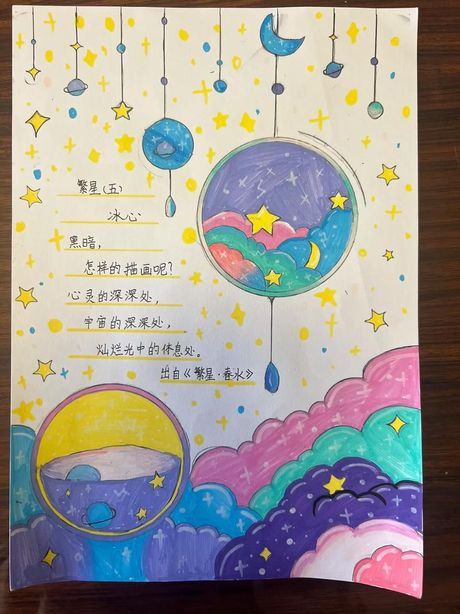 繁星(五)
冰心
黑暗,
怎样的描画呢?
心灵的深深处,
宇宙的深深处,
灿烂光中的休息处。
出自《繁星·春水》